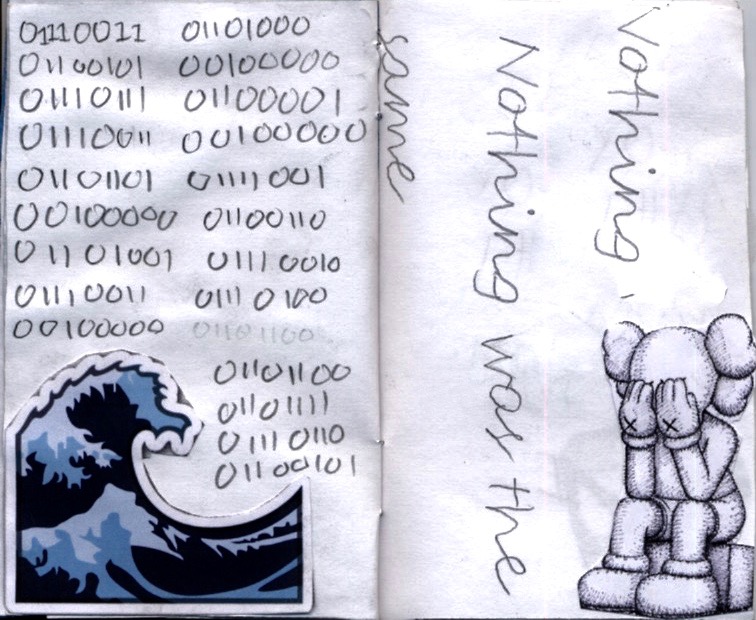 01110011 01101000
01100101 00100000
01110111 01100001
01110011 00100000
01101101 01111001
00100000 01100110
01101001 01110010
01110011 01110100
00100000 01101100
01101100
01101111
01110110
01100101
Nothing,
Nothing was the
same